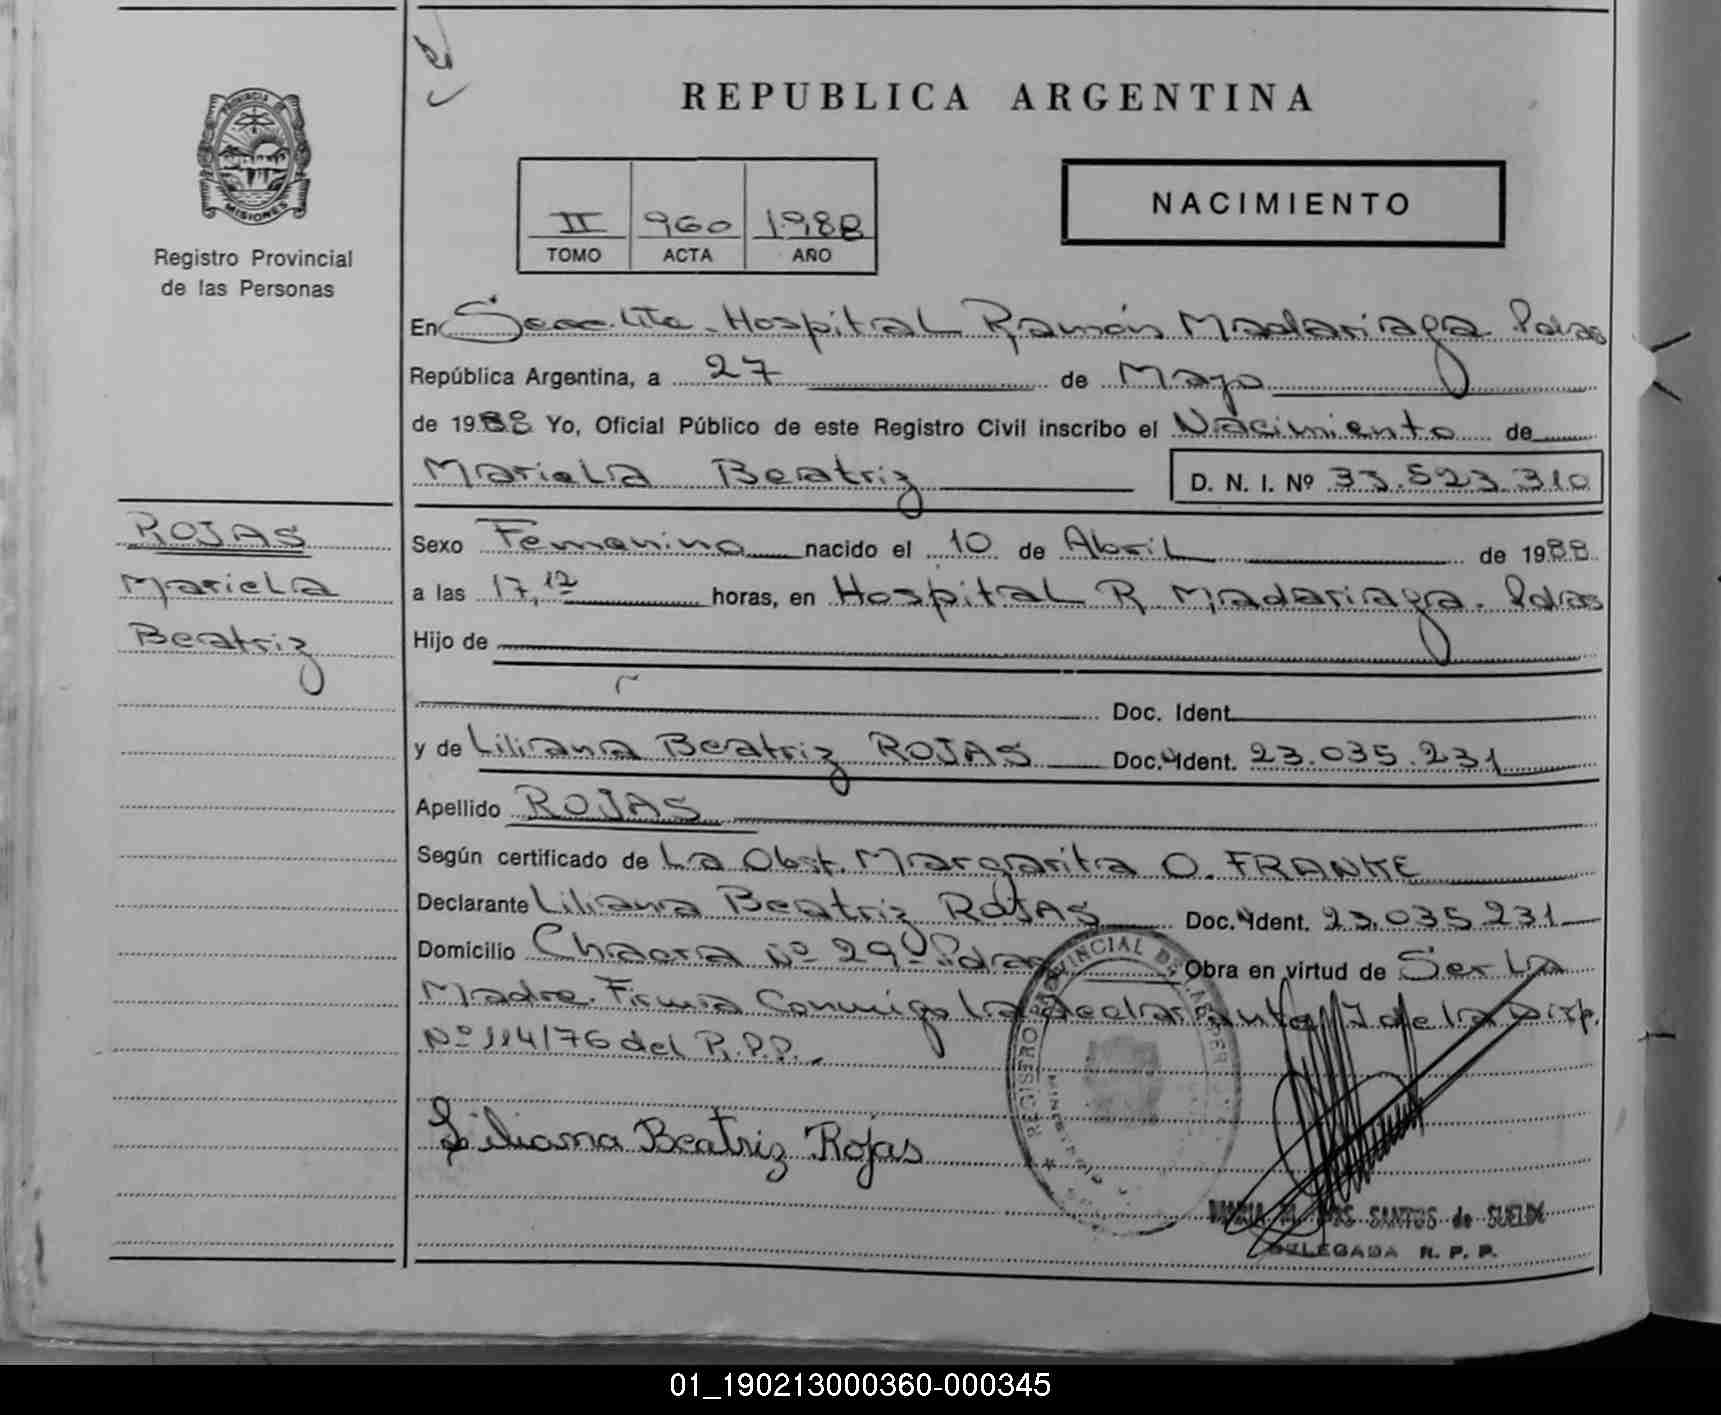 REPUBLICA ARGENTINA
PROVINCIA DE
MISIONES
Registro Provincial
de las Personas
II 960 1.988
TOMO ACTA AÑO
NACIMIENTO
En Secc. Hospital Ramón Madariaga Pdas
República Argentina, a 27 de Mayo
de 1988 Yo, Oficial Público de este Registro Civil inscribo el Nacimiento de
Mariela Beatriz D. N. I. Nº 33.523.310
ROJAS
Mariela
Beatriz
Sexo Femenino nacido el 10 de Abril de 1988
a las 17,12 horas, en Hospital R. Madariaga. Pdas
Hijo de
Doc. Ident.
y de Liliana Beatriz ROJAS Doc. Ident. 23.035.231
Apellido ROJAS
Según certificado de La Obst. Margarita O. FRANKE
Declarante Liliana Beatriz ROJAS Doc. Ident. 23.035.231
Domicilio Chacra Nº 29 Pdas Obra en virtud de Ser La
Madre. Firma Conmigo La declarante de la Disp.
Nº 114/76 del R.P.P.
Liliana Beatriz Rojas
REGISTRO PROVINCIAL DE LAS PER
MINISTERIO
MARIA M. DOS SANTOS de SUELDO
DELEGADA R. P. P.
01_190213000360-000345